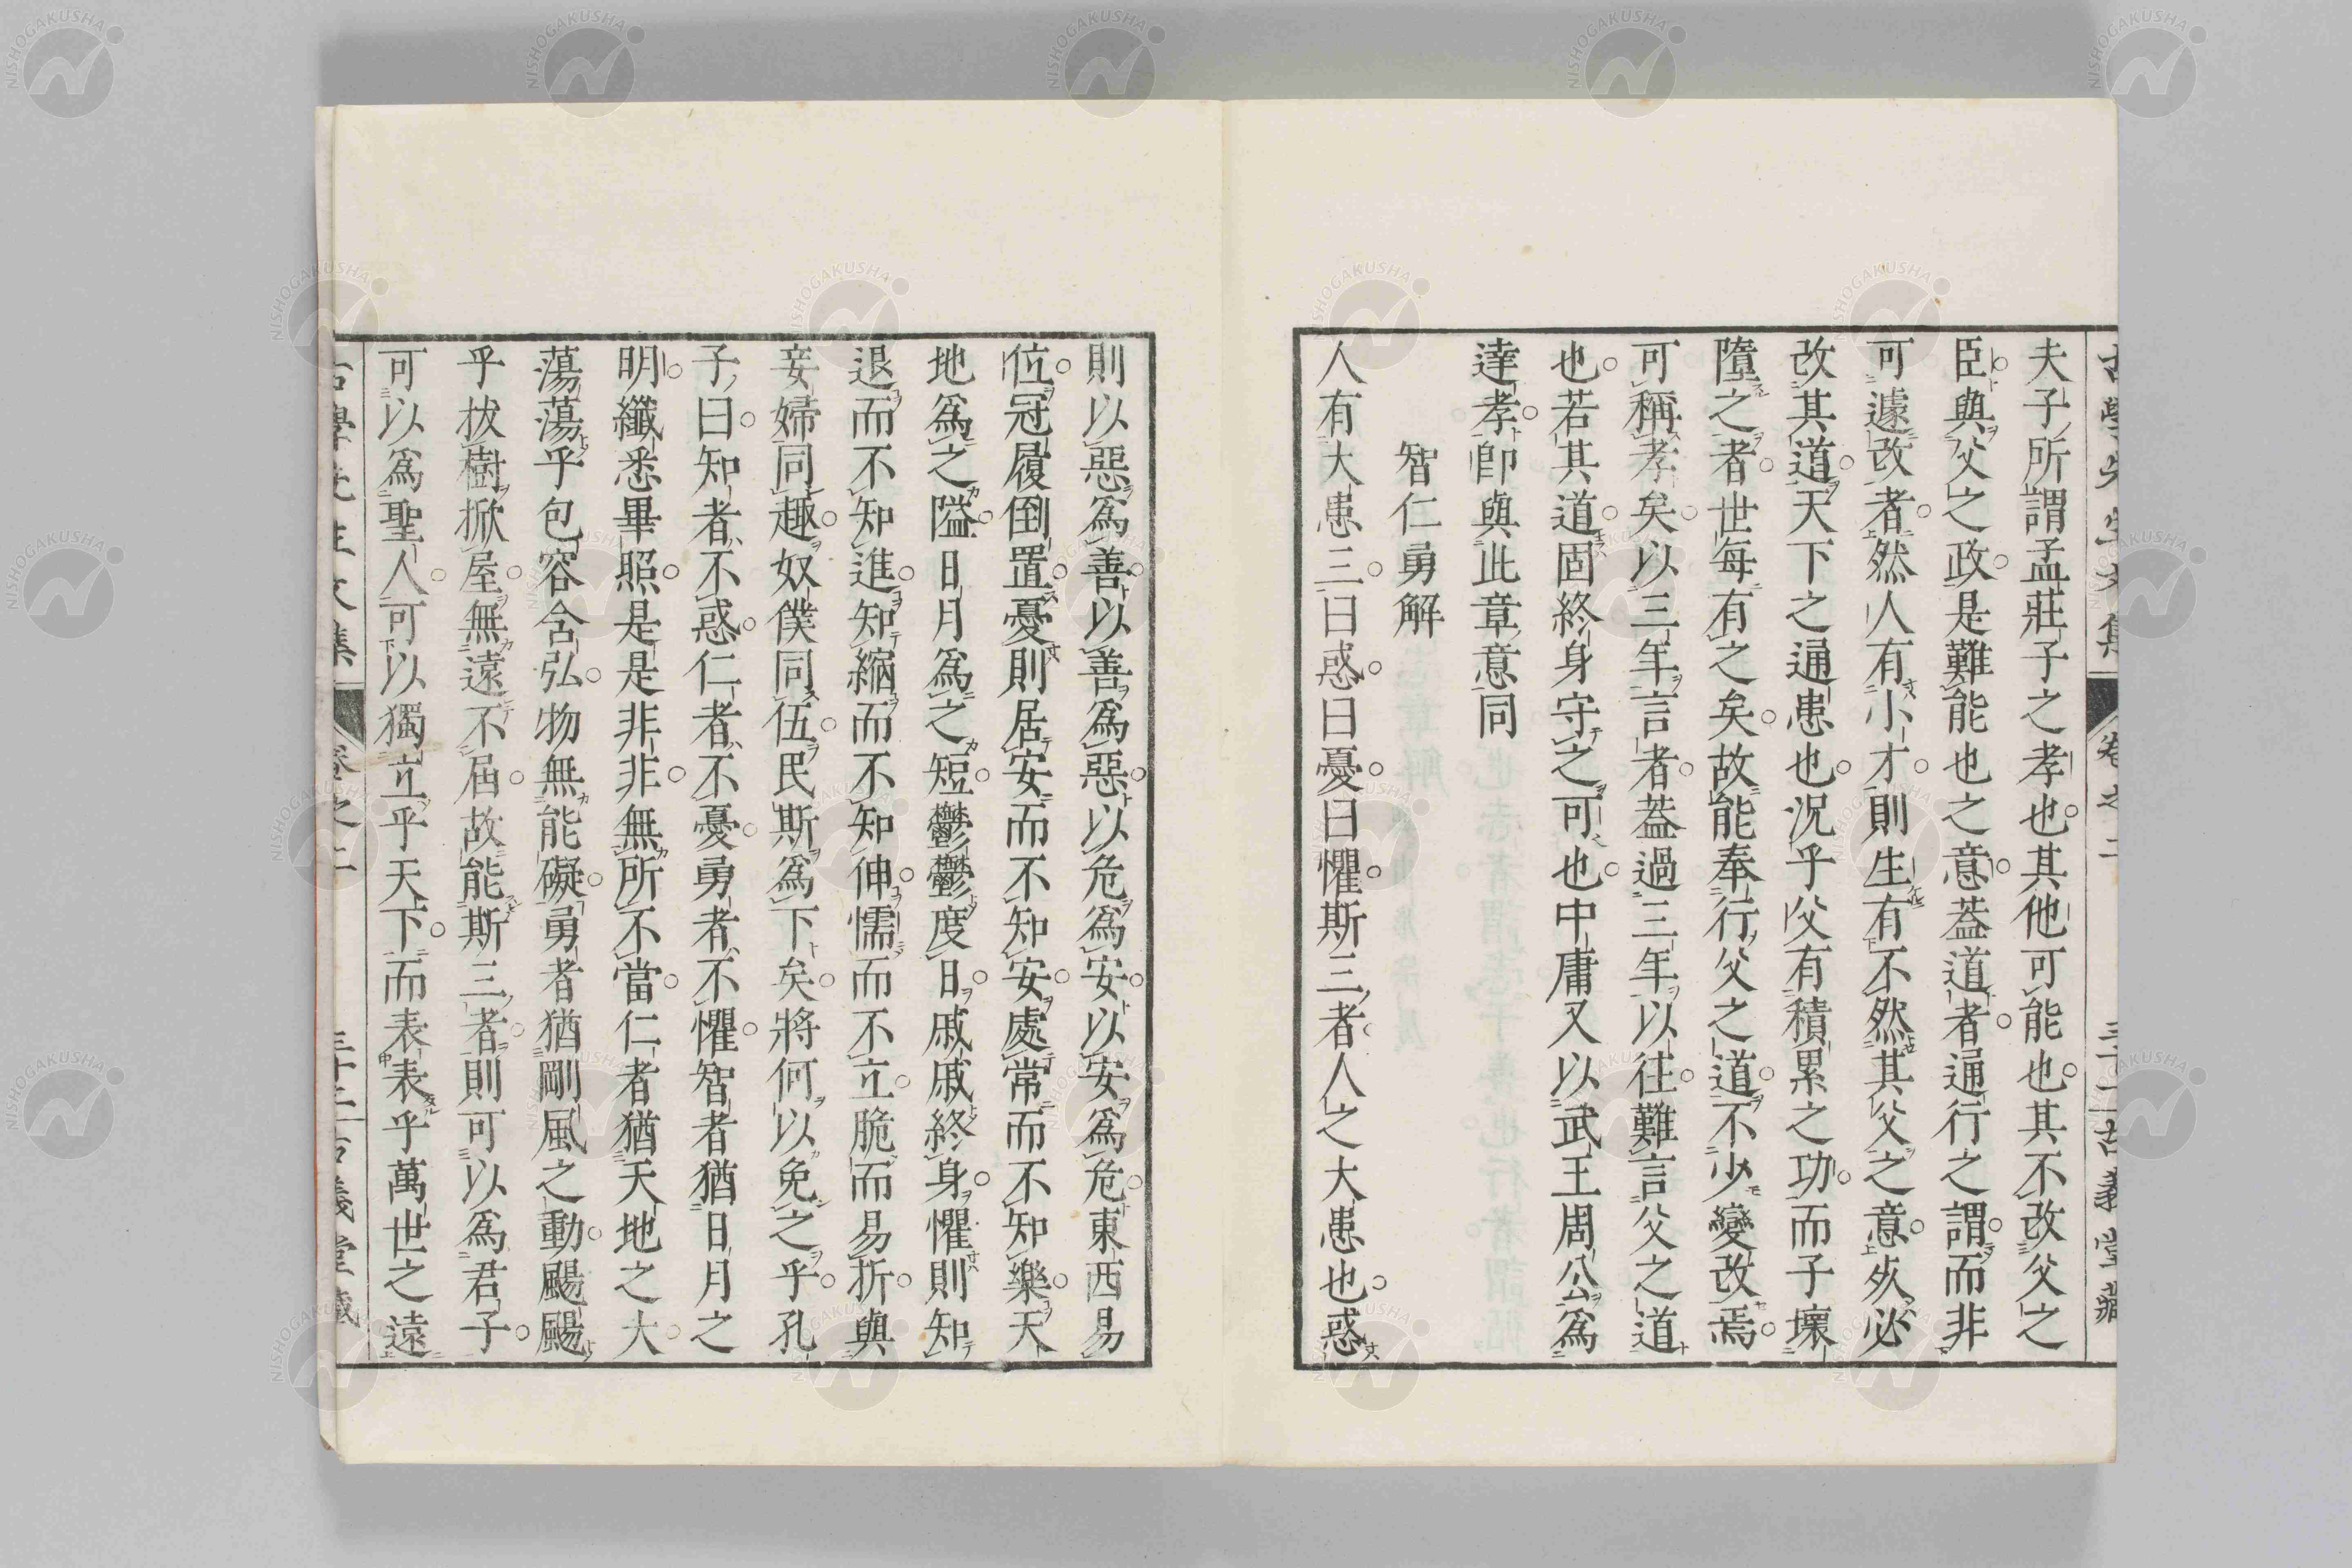 古學先生文集 卷之二 古義堂藏
夫子所謂孟莊子之孝也其他可能也其不改父之
臣與父之政是難能也之意葢道者通行之謂而非
可遽改者然人有小才則生有不然其父之意必
改其道天下之通患也況乎父有積累之功而子壞
隳之者世每有之矣故能奉行父之道不少變改焉
可稱孝矣以三年言者葢過三年以往難言父之道
也若其道固終身守之可也中庸又以武王周公爲
達孝卽與此章意同
智仁勇解
人有大患三曰惑曰憂曰懼斯三者人之大患也惑
則以惡爲善以善爲惡以危爲安以安爲危東西易
位冠履倒置憂則居安而不知安處常而不知樂天
地爲之隘日月爲之短鬱鬱度日戚戚終身懼則知
退而不知進知縮而不知伸懦而不立脆而易折與
妾婦同趣奴僕同伍民斯爲下矣將何以免之乎孔
子曰知者不惑仁者不憂勇者不懼智者猶日月之
明纖悉畢照是是非非無所不當仁者猶天地之大
蕩蕩乎包容含弘物無能礙勇者猶剛風之動颺颺
乎拔樹掀屋無遠不屆故能斯三者則可以爲君子
可以爲聖人可以獨立乎天下而表表乎萬世之遠
古學先生文集 卷之二 古義堂藏
NISHOGAKUSHA